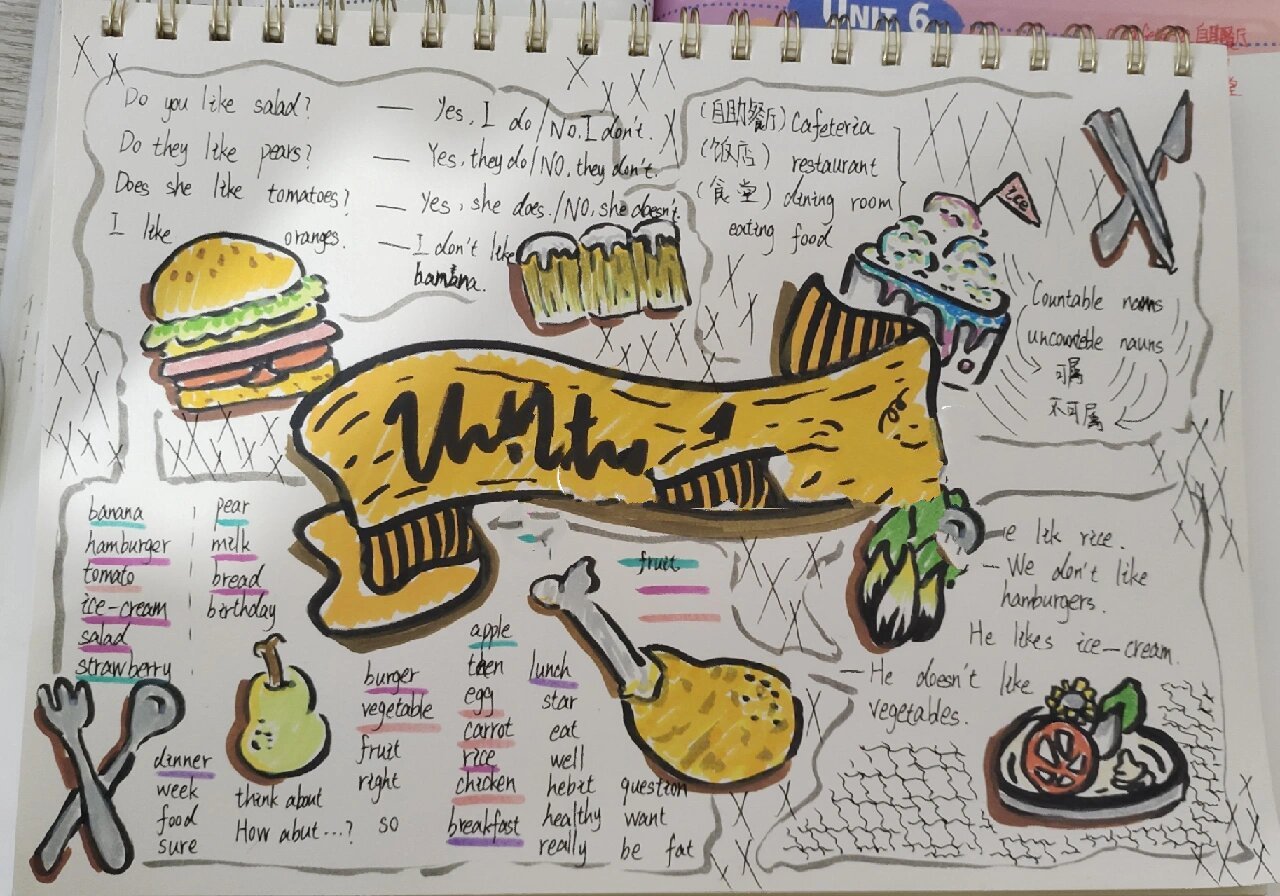 UNIT 6
Do you like salad? — Yes, I do/No, I don't.
Do they like pears? — Yes, they do/NO, they don't.
Does she like tomatoes? — Yes, she does./NO, she doesn't.
I like oranges. — I don't like
banana.
(自助餐厅) Cafeteria
(饭店) restaurant
(食堂) dining room
eating food
ice
Countable nauns
uncountable nauns
可属
不可属
1
banana
hamburger
tomato
ice-cream
salad
strawberry
pear
milk
bread
birthday
dinner
week
food
sure
think about
How abut...?
burger
vegetable
fruit
right
so
apple
then
egg
carrot
rice
chicken
breakfast
lunch
star
eat
well
hebit
healthy
really
question
want
be fat
fruit
e lik rice.
— We don't like
hamburgers.
He likes ice-cream.
— He doesn't like
vegetables.